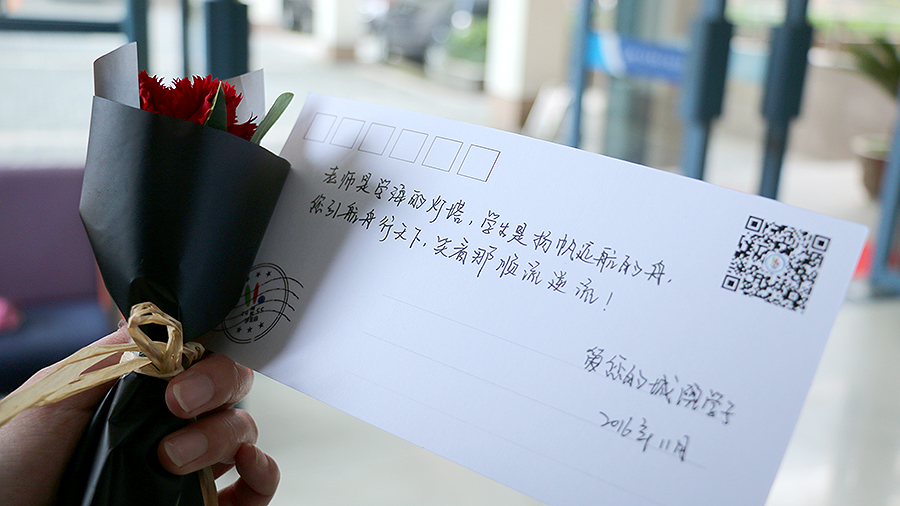 老师是学海的灯塔，学生是扬帆远航的舟，
您引航舟行天下，笑看那顺流逆流！
爱您的城院学子
2016年11月